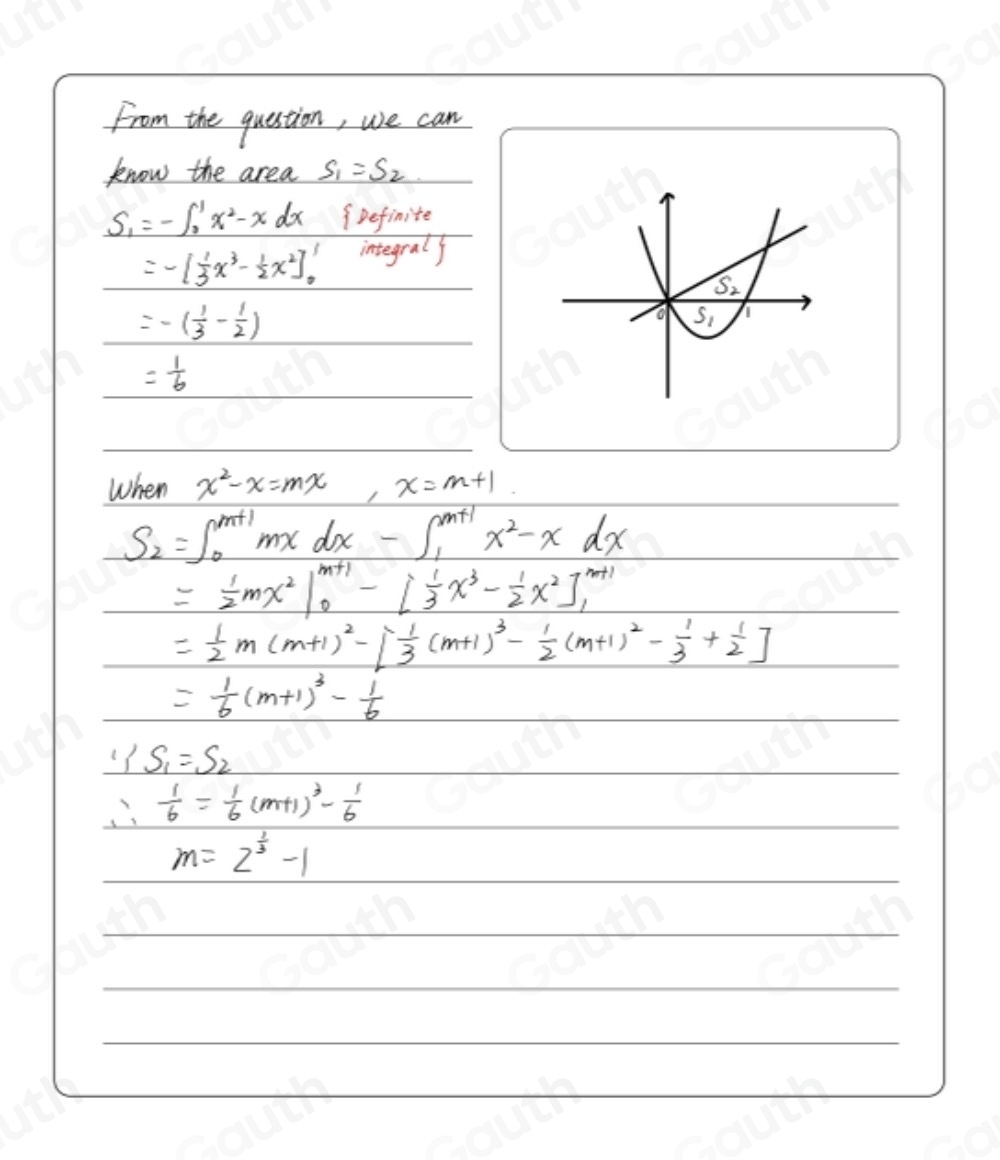 From the question, we can
know the area S₁ = S₂.
S₁ = -∫₀¹ x² - x dx {Definite integral}
= -[⅓x³ - ½x²]₀¹
= -(⅓ - ½)
= 1/6
S₂
0 S₁ 1
When x² - x = mx , x = m+1.
S₂ = ∫₀^(m+1) mx dx - ∫₁^(m+1) x² - x dx
= ½mx² |₀^(m+1) - [⅓x³ - ½x²]₁^(m+1)
= ½m(m+1)² - [⅓(m+1)³ - ½(m+1)² - ⅓ + ½]
= 1/6(m+1)³ - 1/6
∵ S₁ = S₂
∴ 1/6 = 1/6(m+1)³ - 1/6
m = 2^(1/3) - 1
Gauth